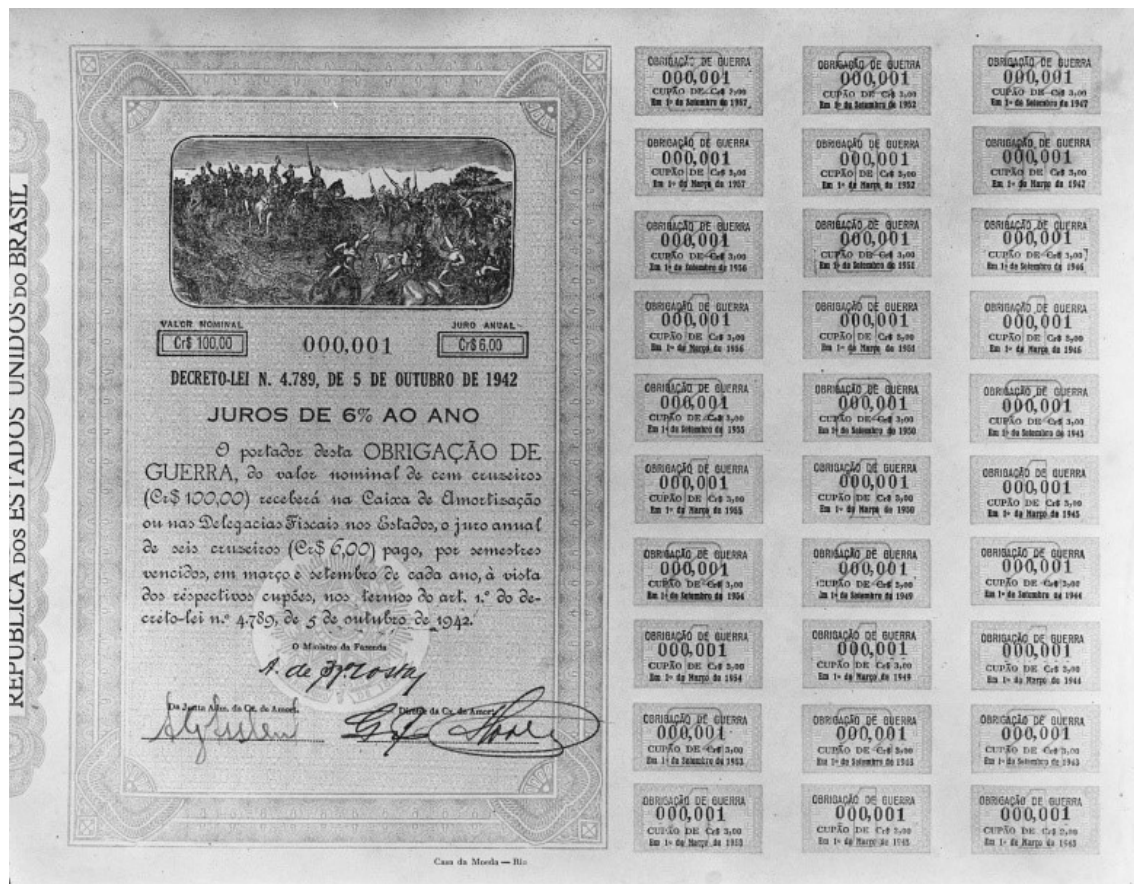 REPUBLICA DOS ESTADOS UNIDOS DO BRASIL
VALOR NOMINAL
Cr$ 100,00
000,001
JURO ANUAL
Cr$ 6,00
DECRETO-LEI N. 4.789, DE 5 DE OUTUBRO DE 1942
JUROS DE 6% AO ANO
O portador desta OBRIGAÇÃO DE
GUERRA, do valor nominal de cem cruzeiros
(Cr$ 100,00) receberá na Caixa de Amortização
ou nas Delegacias Fiscais nos Estados, o juro anual
de seis cruzeiros (Cr$ 6,00) pago, por semestres
vencidos, em março e setembro de cada ano, à vista
dos respectivos cupões, nos termos do art. 1.º do de-
creto-lei n.º 4.789, de 5 de outubro de 1942.
O Ministro da Fazenda
Da Junta Adm. da Cx. de Amort.
Diretor da Cx. de Amort.
Casa da Moeda — Rio
OBRIGAÇÃO DE GUERRA
000,001
CUPÃO DE Cr$ 3,00
Em 1º de Setembro de 1957
OBRIGAÇÃO DE GUERRA
000,001
CUPÃO DE Cr$ 3,00
Em 1º de Setembro de 1952
OBRIGAÇÃO DE GUERRA
000,001
CUPÃO DE Cr$ 3,00
Em 1º de Setembro de 1947
OBRIGAÇÃO DE GUERRA
000,001
CUPÃO DE Cr$ 3,00
Em 1º de Março de 1957
OBRIGAÇÃO DE GUERRA
000,001
CUPÃO DE Cr$ 3,00
Em 1º de Março de 1952
OBRIGAÇÃO DE GUERRA
000,001
CUPÃO DE Cr$ 3,00
Em 1º de Março de 1947
OBRIGAÇÃO DE GUERRA
000,001
CUPÃO DE Cr$ 3,00
Em 1º de Setembro de 1956
OBRIGAÇÃO DE GUERRA
000,001
CUPÃO DE Cr$ 3,00
Em 1º de Setembro de 1951
OBRIGAÇÃO DE GUERRA
000,001
CUPÃO DE Cr$ 3,00
Em 1º de Setembro de 1946
OBRIGAÇÃO DE GUERRA
000,001
CUPÃO DE Cr$ 3,00
Em 1º de Março de 1956
OBRIGAÇÃO DE GUERRA
000,001
CUPÃO DE Cr$ 3,00
Em 1º de Março de 1951
OBRIGAÇÃO DE GUERRA
000,001
CUPÃO DE Cr$ 3,00
Em 1º de Março de 1946
OBRIGAÇÃO DE GUERRA
000,001
CUPÃO DE Cr$ 3,00
Em 1º de Setembro de 1955
OBRIGAÇÃO DE GUERRA
000,001
CUPÃO DE Cr$ 3,00
Em 1º de Setembro de 1950
OBRIGAÇÃO DE GUERRA
000,001
CUPÃO DE Cr$ 3,00
Em 1º de Setembro de 1945
OBRIGAÇÃO DE GUERRA
000,001
CUPÃO DE Cr$ 3,00
Em 1º de Março de 1955
OBRIGAÇÃO DE GUERRA
000,001
CUPÃO DE Cr$ 3,00
Em 1º de Março de 1950
OBRIGAÇÃO DE GUERRA
000,001
CUPÃO DE Cr$ 3,00
Em 1º de Março de 1945
OBRIGAÇÃO DE GUERRA
000,001
CUPÃO DE Cr$ 3,00
Em 1º de Setembro de 1954
OBRIGAÇÃO DE GUERRA
000,001
CUPÃO DE Cr$ 3,00
Em 1º de Setembro de 1949
OBRIGAÇÃO DE GUERRA
000,001
CUPÃO DE Cr$ 3,00
Em 1º de Setembro de 1944
OBRIGAÇÃO DE GUERRA
000,001
CUPÃO DE Cr$ 3,00
Em 1º de Março de 1954
OBRIGAÇÃO DE GUERRA
000,001
CUPÃO DE Cr$ 3,00
Em 1º de Março de 1949
OBRIGAÇÃO DE GUERRA
000,001
CUPÃO DE Cr$ 3,00
Em 1º de Março de 1944
OBRIGAÇÃO DE GUERRA
000,001
CUPÃO DE Cr$ 3,00
Em 1º de Setembro de 1953
OBRIGAÇÃO DE GUERRA
000,001
CUPÃO DE Cr$ 3,00
Em 1º de Setembro de 1948
OBRIGAÇÃO DE GUERRA
000,001
CUPÃO DE Cr$ 3,00
Em 1º de Setembro de 1943
OBRIGAÇÃO DE GUERRA
000,001
CUPÃO DE Cr$ 3,00
Em 1º de Março de 1953
OBRIGAÇÃO DE GUERRA
000,001
CUPÃO DE Cr$ 3,00
Em 1º de Março de 1948
OBRIGAÇÃO DE GUERRA
000,001
CUPÃO DE Cr$ 3,00
Em 1º de Março de 1943